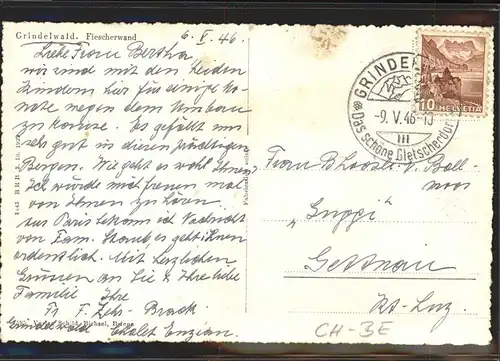 Grindelwald. Fiescherwand
6. V. 46.
Liebe Frau Bertha
wir sind mit den beiden
Kindern hier für einige Mo-
nate wegen dem Umbau
zu Hause. Es gefällt uns
sehr gut in diesen prächtigen
Bergen. Wie geht es wohl Ihnen?
Ich würde mich freuen mal
von Ihnen zu hören.
Aus Paris bekam ich Nachricht
von Fam. Staub, es geht ihnen
ordentlich. Mit herzlichen
Grüssen an Sie & Ihre liebe
Familie Ihre
Fr. F. Zehr-Brack
Grindelwald Chalet Enzian.
GRINDEL
-9. V. 46-
Das schöne Gletscherdorf
10 HELVETIA
Frau B.
"Guggi"
Gettnau
Kt. Luz.
CH-BE